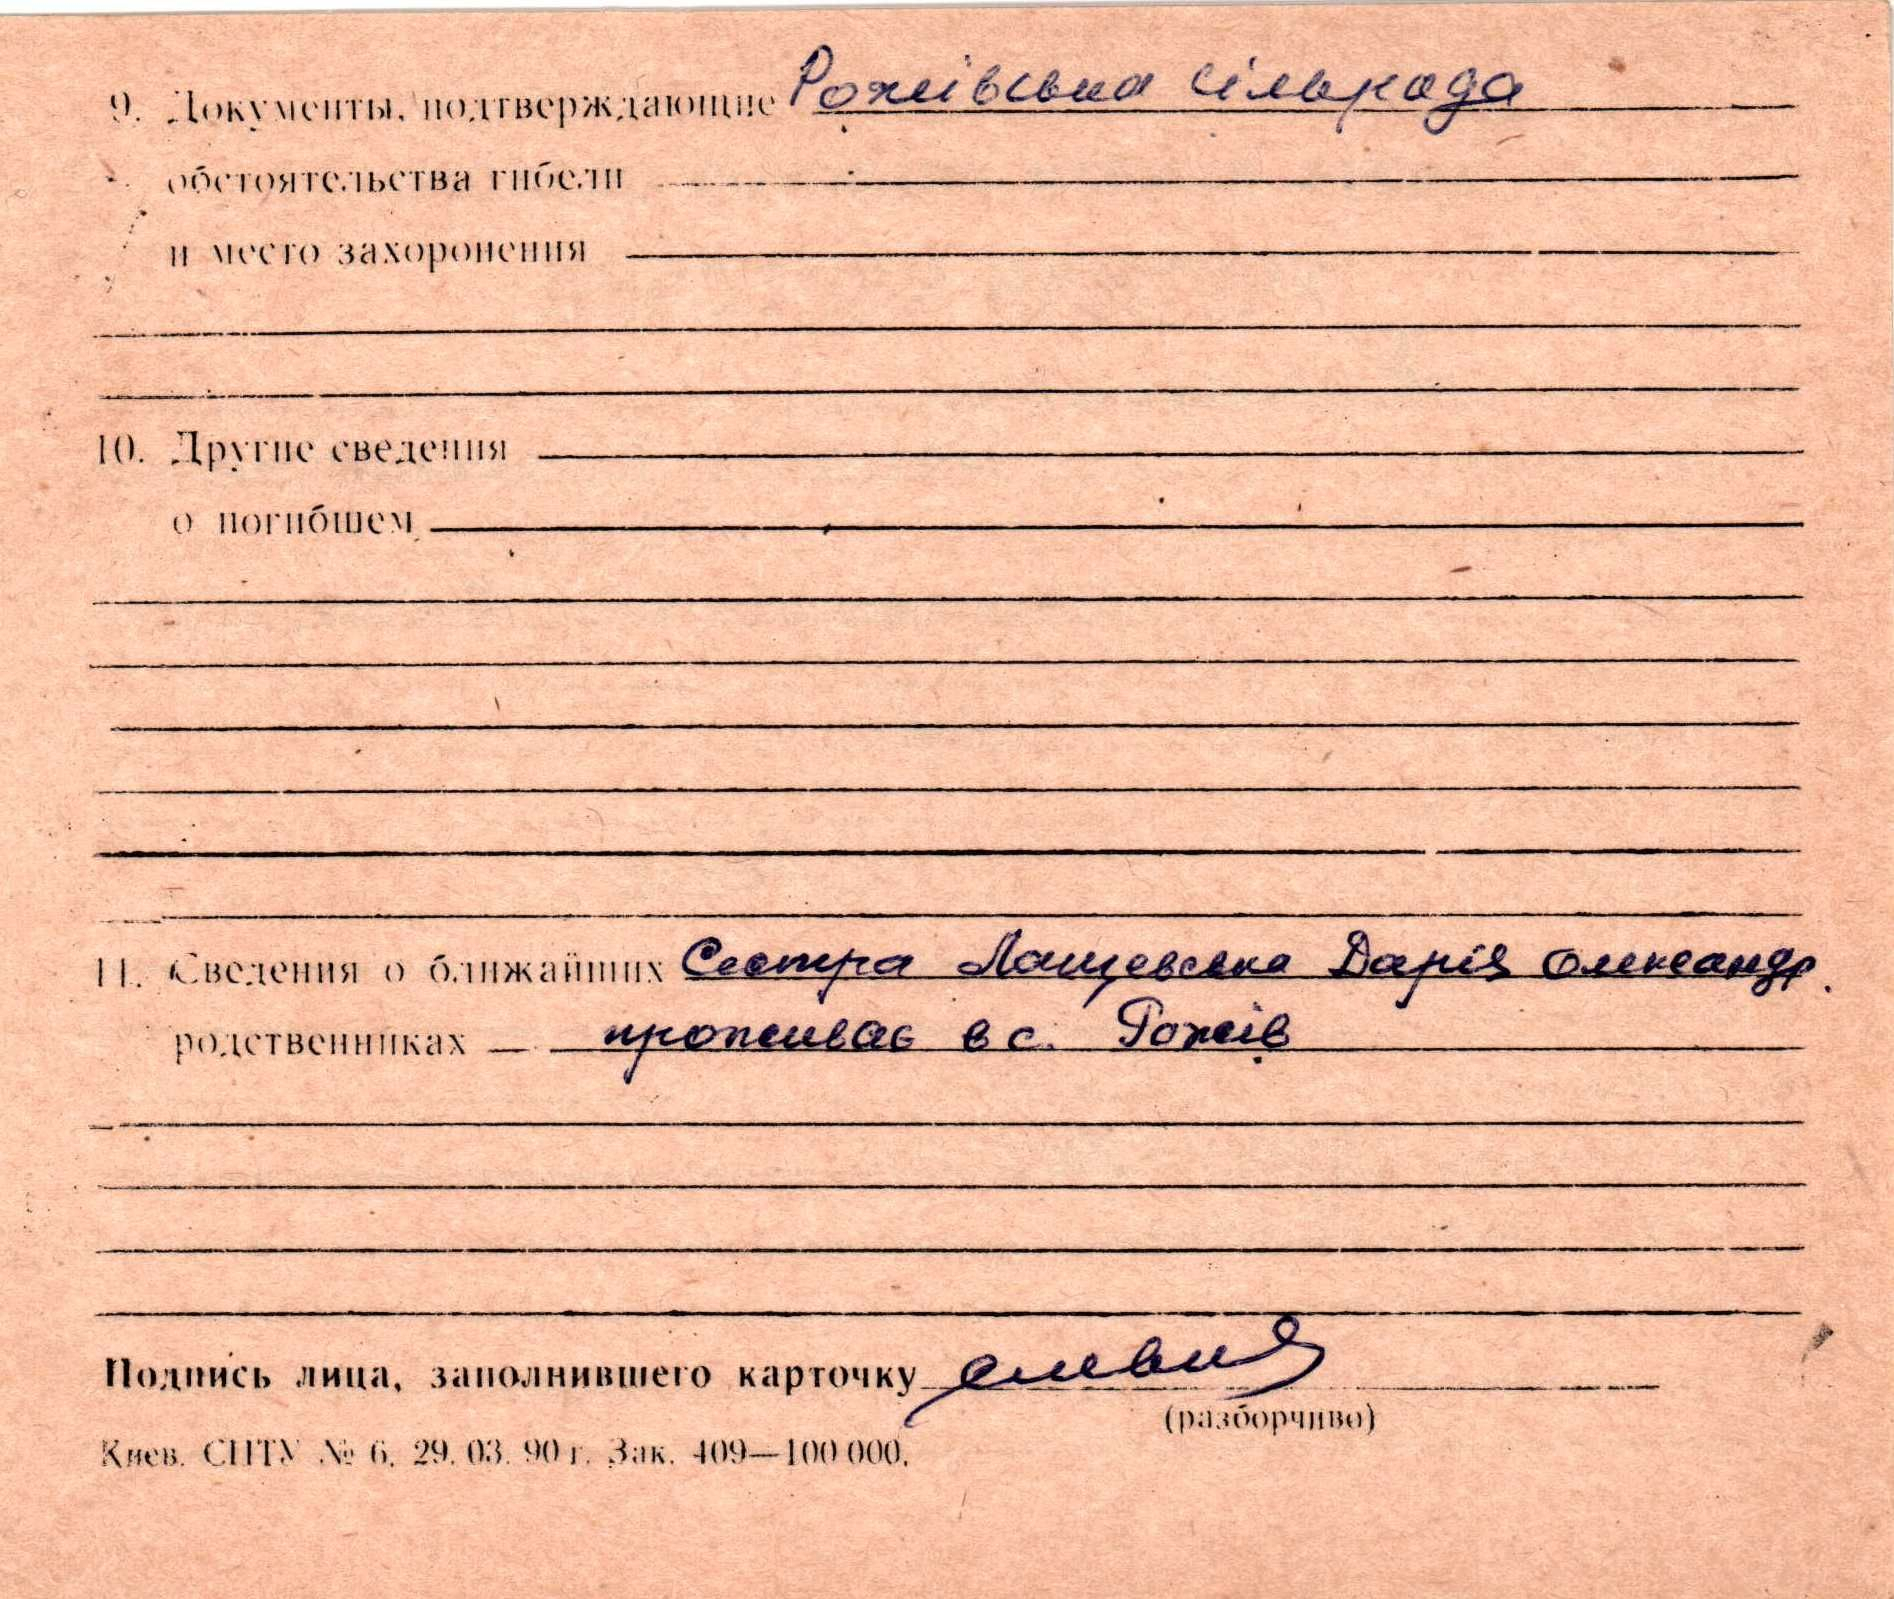 9. Документы, подтверждающие Рожівська сільрада
обстоятельства гибели
и место захоронения
10. Другие сведения
о погибшем
11. Сведения о ближайших Сестра Лащевська Дарія Олександр.
родственниках проживає в с. Рожів
Подпись лица, заполнившего карточку
(разборчиво)
Киев. СПТУ № 6. 29. 03. 90 г. Зак. 409—100 000.